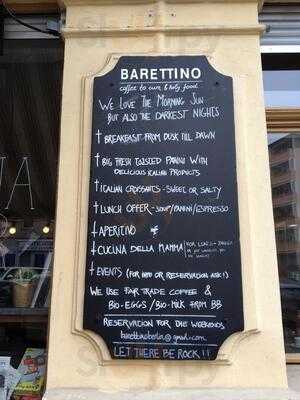 BARETTINO
coffee to cure & holy food
WE LOVE THE MORNING SUN
BUT ALSO THE DARKEST NIGHTS
† BREAKFAST FROM DUSK TILL DAWN
† BIG FRESH TOASTED PANINI WITH
DELICIOUS ITALIAN PRODUCTS
† ITALIAN CROISSANTS - SWEET OR SALTY
† LUNCH OFFER - SOUP/PANINI/ESPRESSO
† APERITIVO
† CUCINA DELLA MAMMA
† EVENTS (FOR INFO OR RESERVATION ASK!)
WE USE FAIR TRADE COFFEE &
BIO-EGGS / BIO-MILK FROM BB
RESERVATION FOR THE WEEKENDS:
barettinoberlin@gmail.com
LET THERE BE ROCK!!